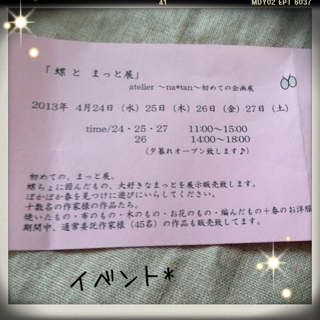 41
MDY02 EPT 6037
「蝶と まっと展」
atelier ～na*tan～初めての企画展
2013年 4月24日（水）25日（木）26日（金）27日（土）
time/24・25・27 11:00～15:00
26 14:00～18:00
（夕暮れオープン致します♪）
初めての、まっと展。
蝶ちょに因んだもの、大好きなまっとを展示販売致します。
ぽかぽか春を見つけに遊びにいらしてください。
十数名の作家様の作品たち。
焼いたもの・布のもの・木のもの・お花のもの・編んだもの＋春のお洋服
期間中、通常委託作家様（45名）の作品も販売致してます。
イベント*